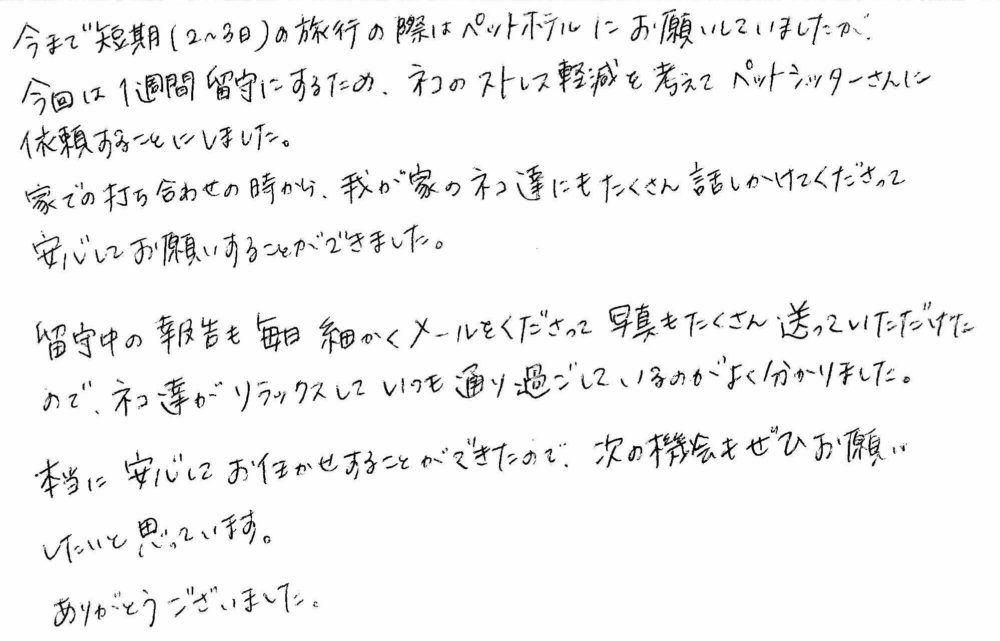 今まで短期(2~3日)の旅行の際はペットホテルにお願いしていましたが、
今回は1週間留守にするため、ネコのストレス軽減を考えてペットシッターさんに
依頼することにしました。
家での打ち合わせの時から、我が家のネコ達にもたくさん話しかけてくださって
安心してお願いすることができました。
留守中の報告も毎日細かくメールをくださって写真もたくさん送っていただけた
ので、ネコ達がリラックスしていつも通り過ごしているのがよく分かりました。
本当に安心しておまかせすることができたので、次の機会もぜひお願い
したいと思っています。
ありがとうございました。